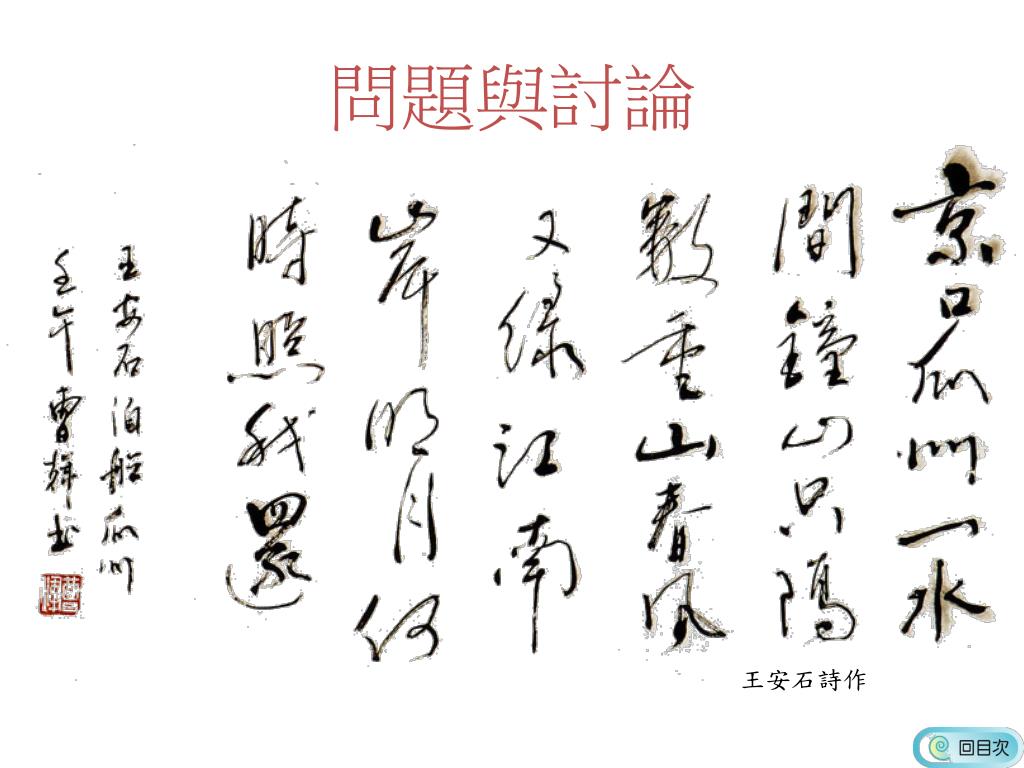 問題與討論
京口瓜州一水
間鐘山只隔
數重山春風
又綠江南
岸明月何
時照我還
王安石泊船瓜州
壬午曹輝書
王安石詩作
回目次